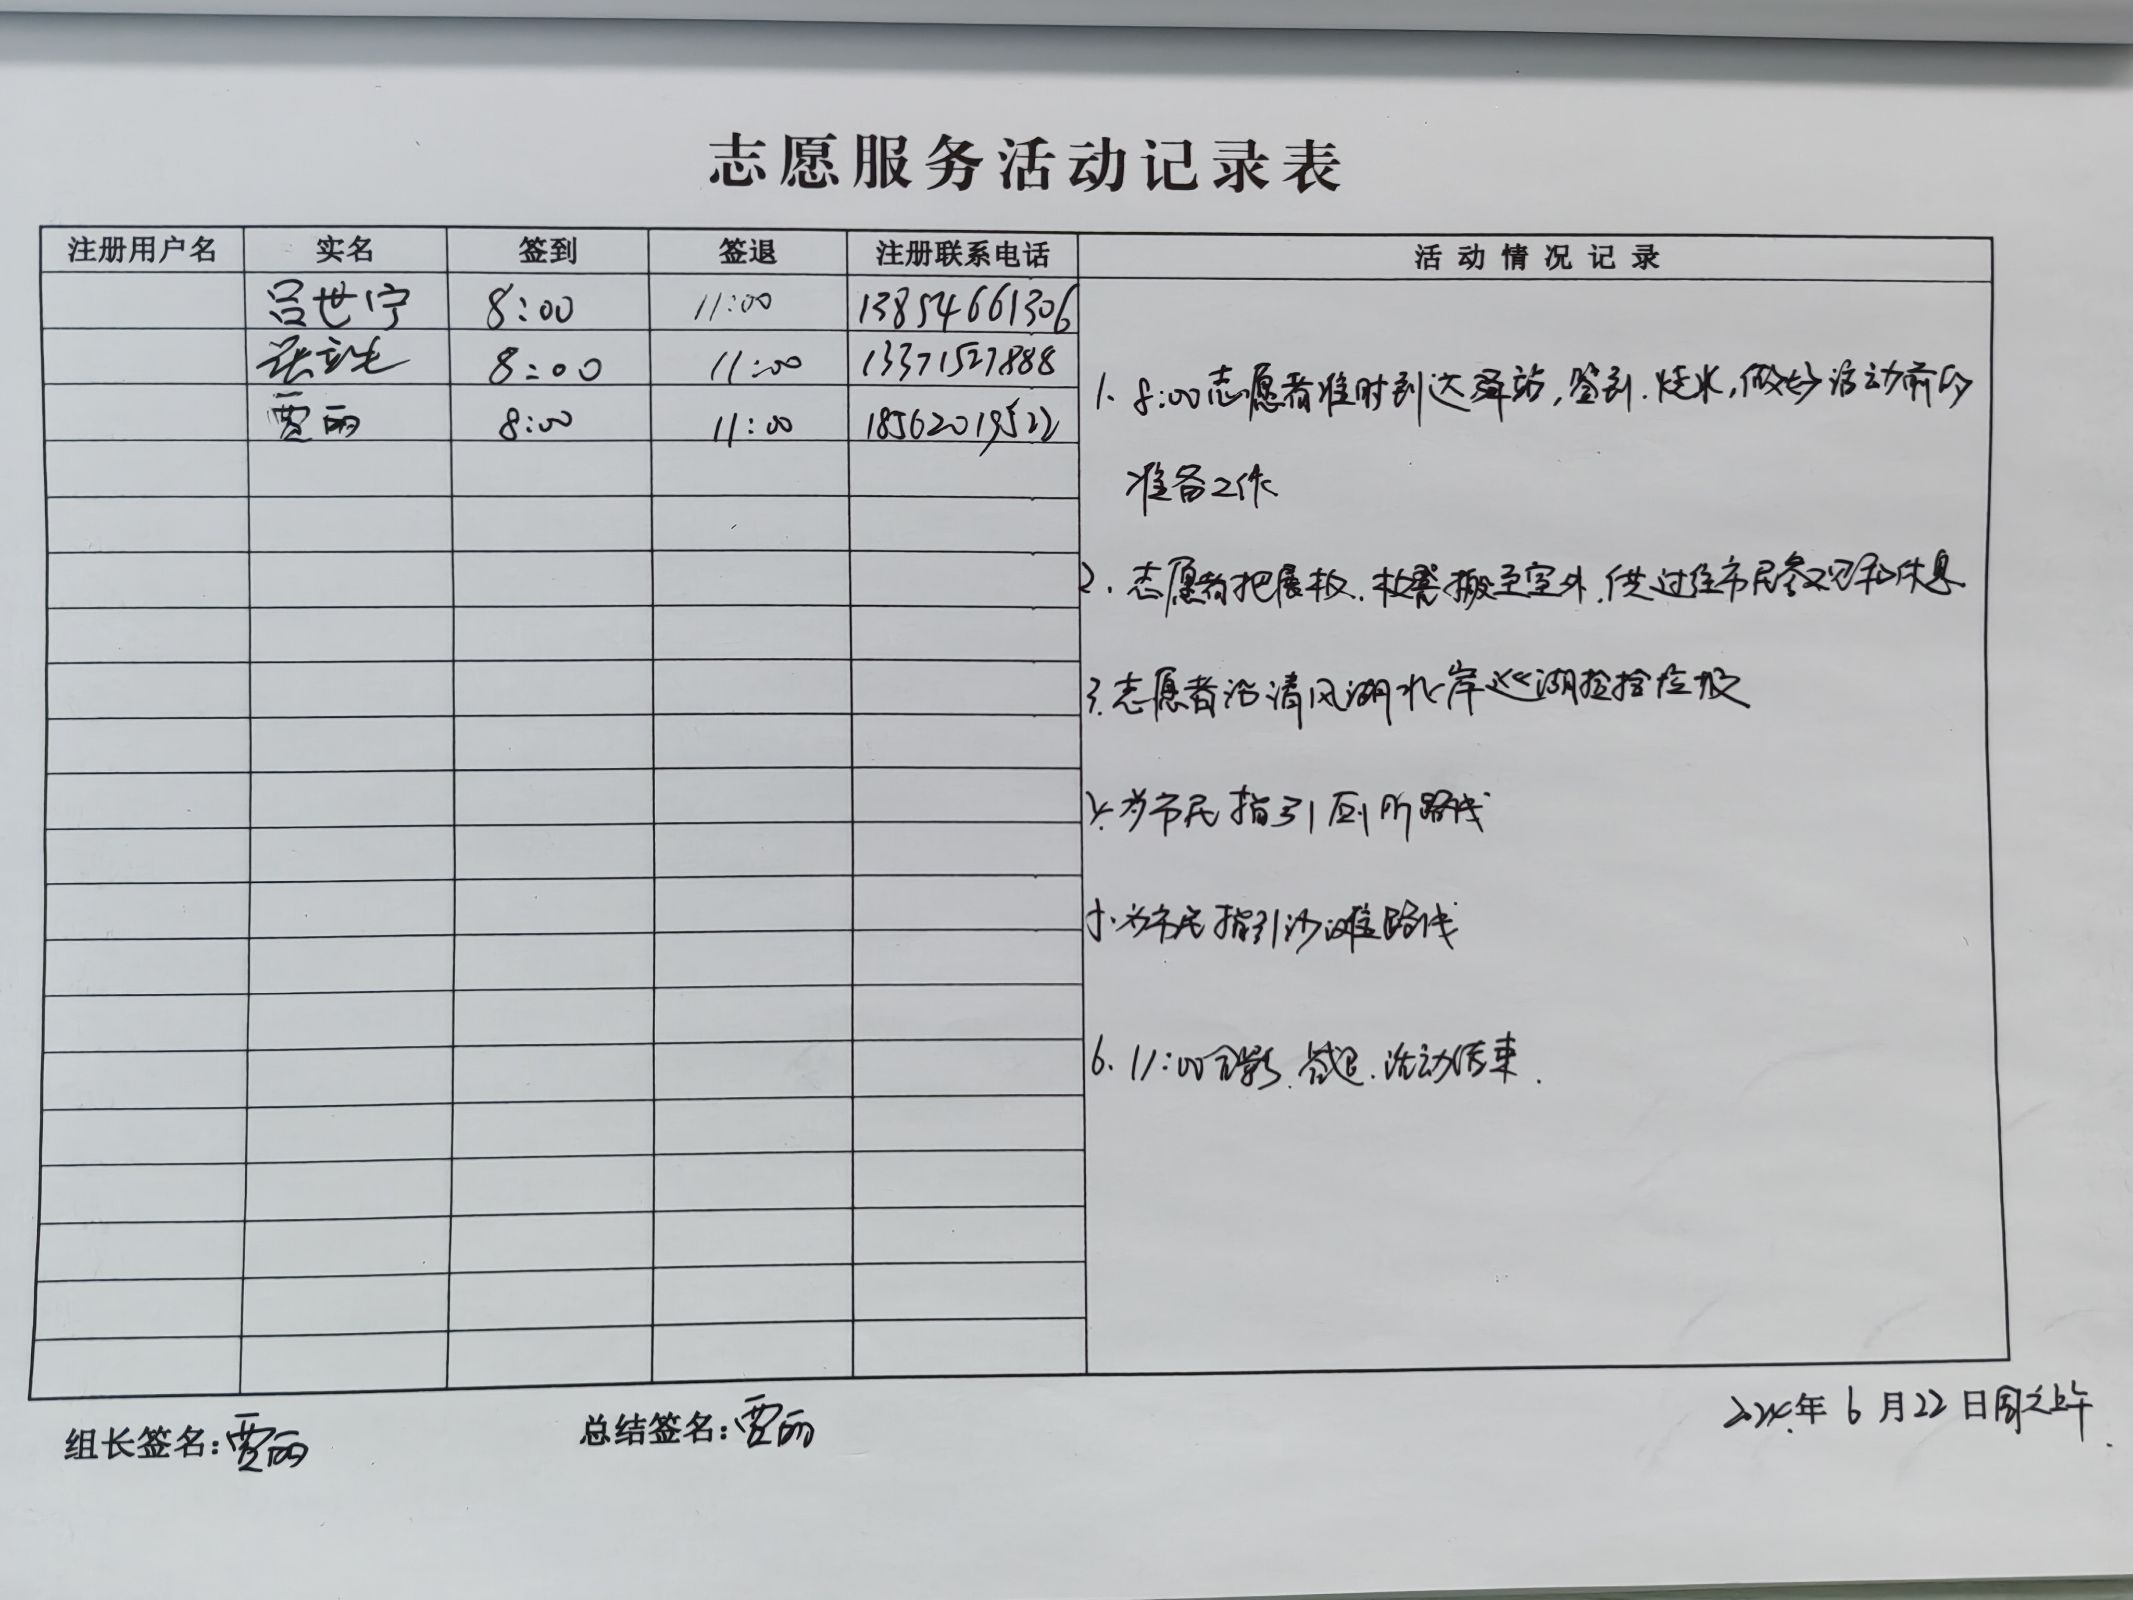 志愿服务活动记录表
注册用户名 实名 签到 签退 注册联系电话 活动情况记录
吕世宁 8:00 11:00 13854661306
张 8:00 11:00 13371527888
贾丽 8:00 11:00 18562019522
1. 8:00志愿者准时到达驿站,签到.烧水,做好活动前的
准备工作
2. 志愿者把展板.板凳搬至室外.供过往市民参观和休息
3.志愿者沿清风湖北岸巡湖捡拾垃圾
4.为市民指引厕所路线
5.为市民指引沙滩路线
6. 11:00合影.签退.活动结束.
组长签名:贾丽 总结签名:贾丽 2024年6月22日周六上午.